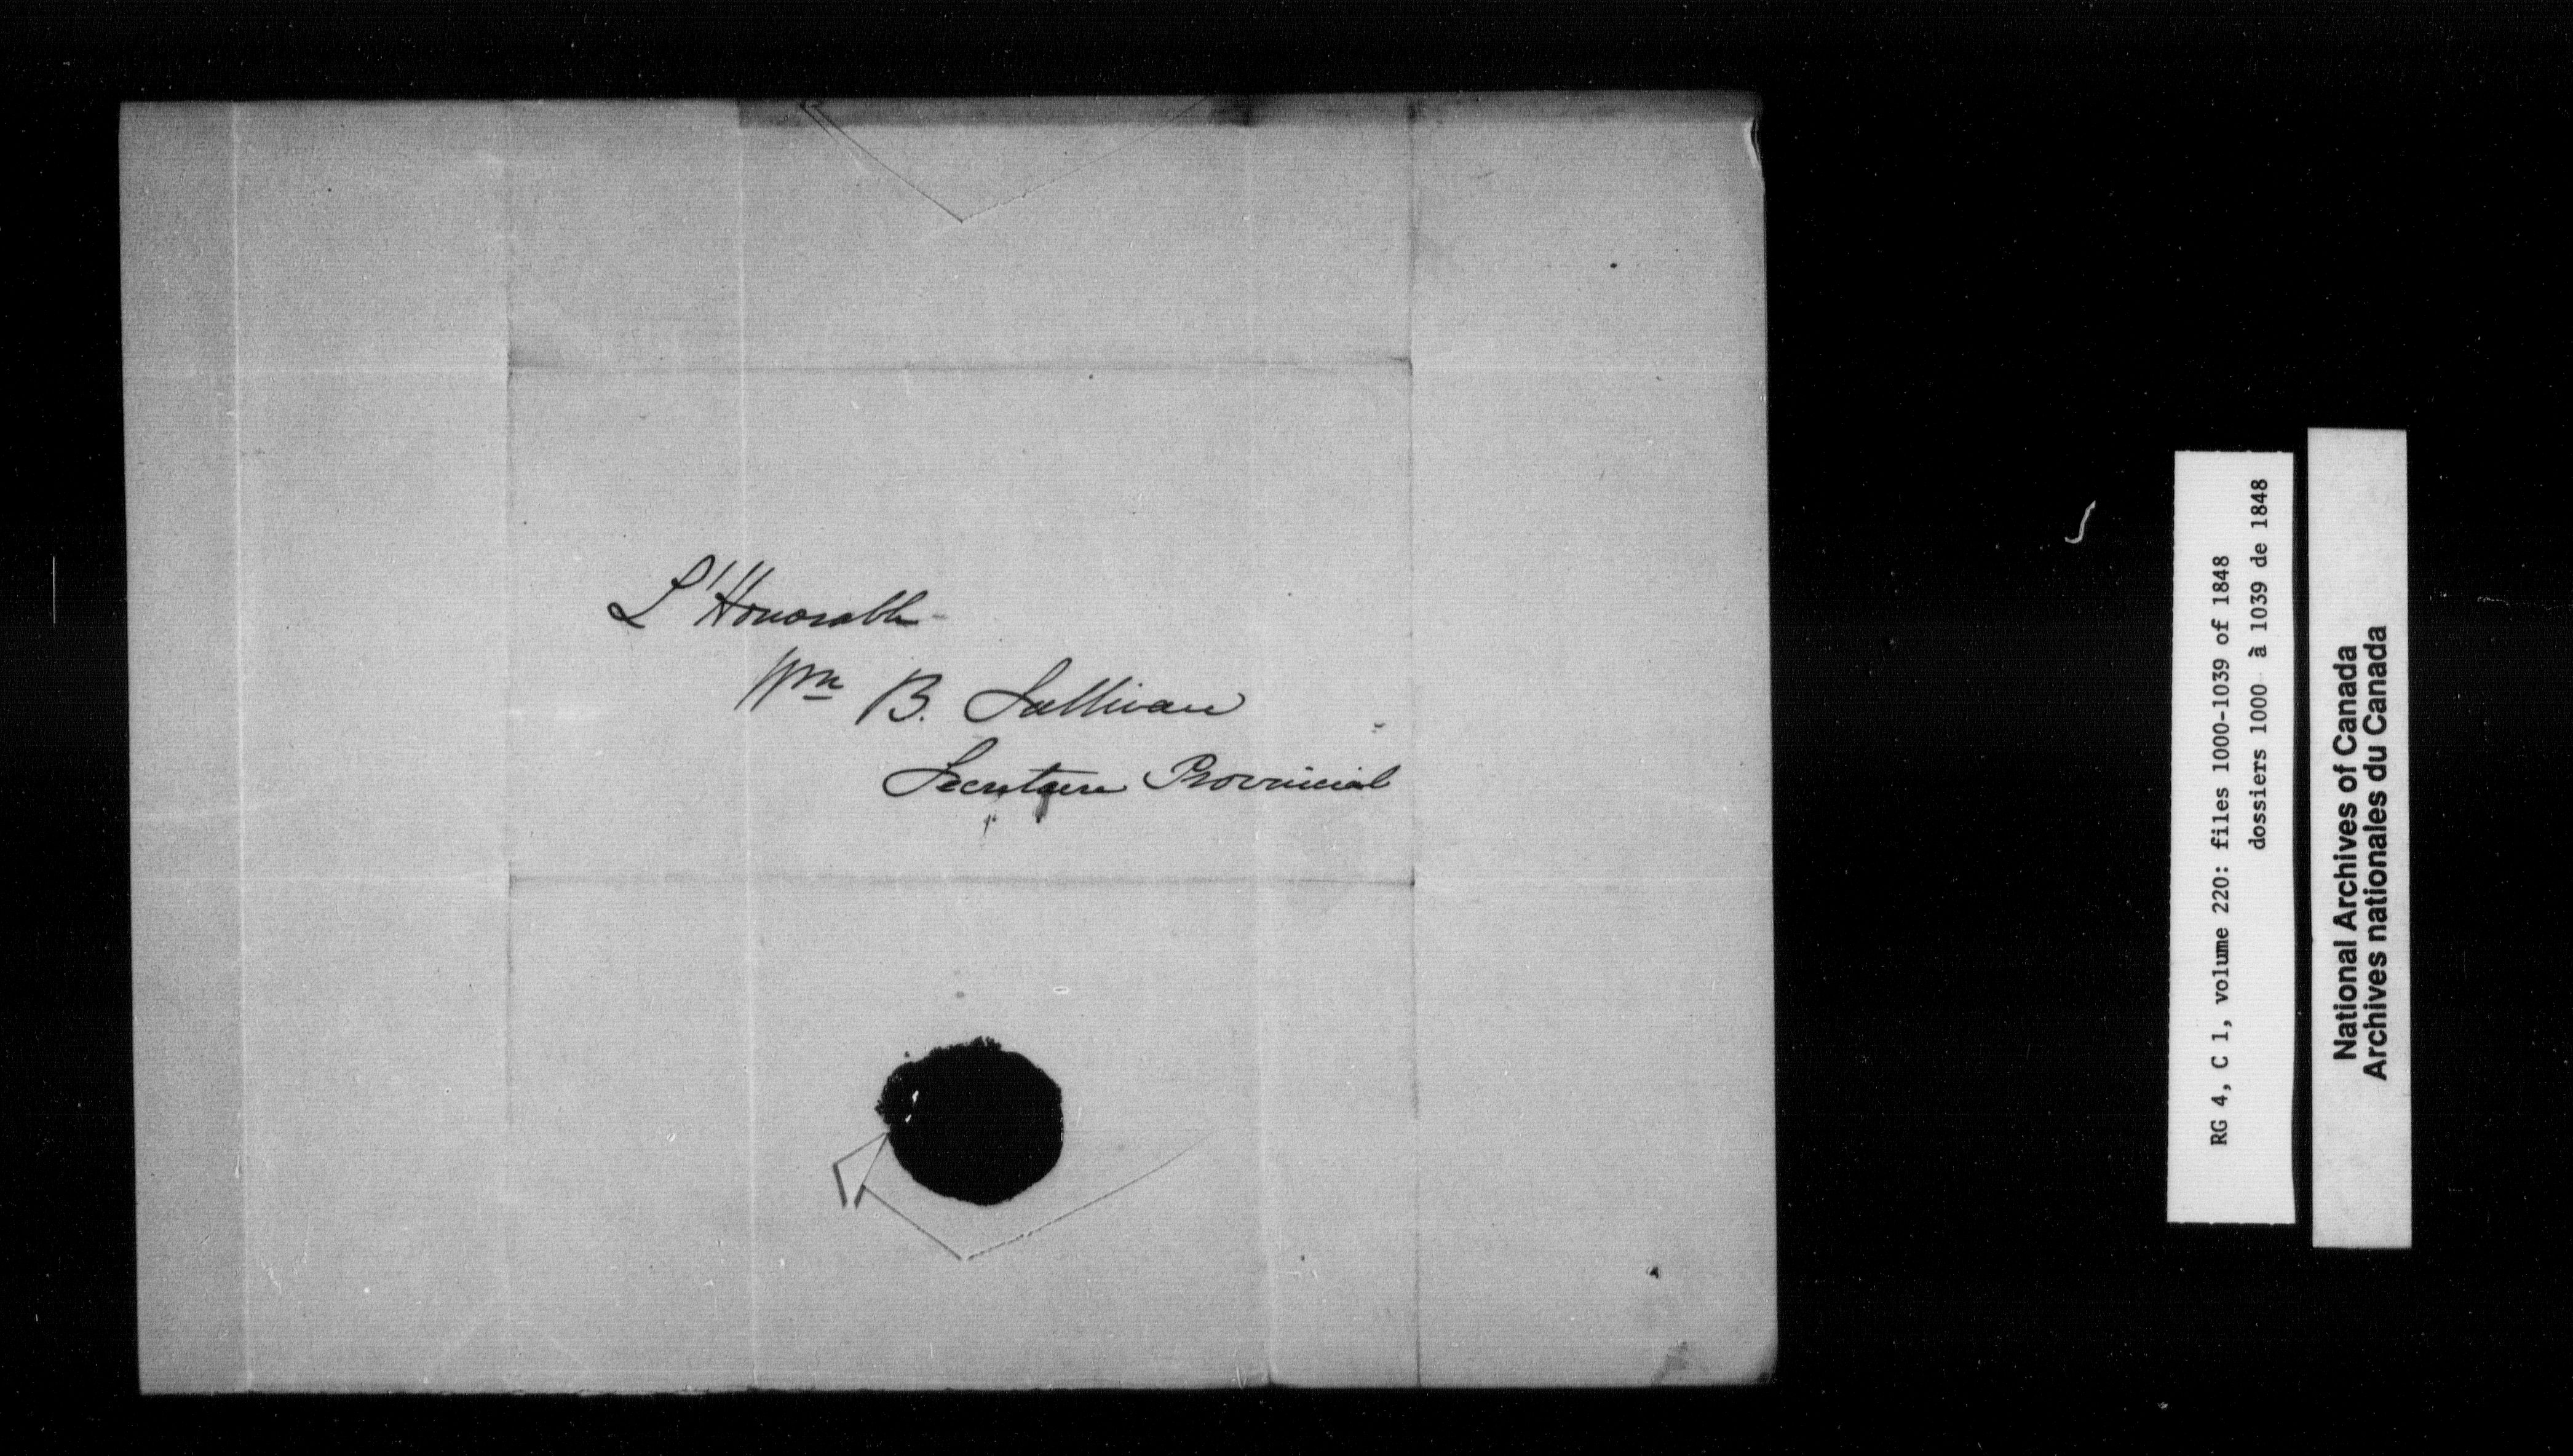 L'Honorable
Wm B. Sullivan
Secretaire Provincial
RG 4, C 1, volume 220: files 1000-1039 of 1848
dossiers 1000 à 1039 de 1848
National Archives of Canada
Archives nationales du Canada